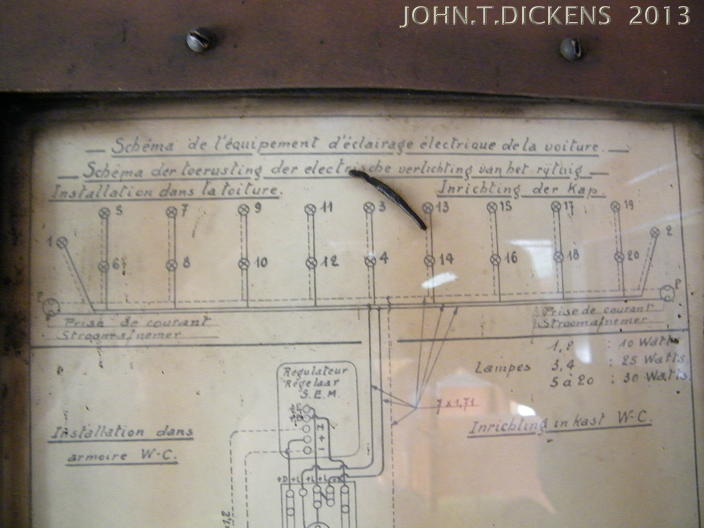 JOHN.T.DICKENS 2013
Schéma de l'équipement d'éclairage électrique de la voiture.
Schéma der toerusting der electrische verlichting van het rytuig
Installation dans la toiture.
Inrichting der Kap.
5 7 9 11 3 13 15 17 19
1 2
6 8 10 12 4 14 16 18 20
P P
Prise de courant
Stroomafnemer
Prise de courant
Stroomafnemer
1, 2 : 10 Watts
Lampes 3, 4 : 25 Watts
5 à 20 : 30 Watts
Régulateur
Regelaar
S.E.M.
7x1,71
Installation dans
armoire W-C.
Inrichting in kast W-C.
+D +L +L